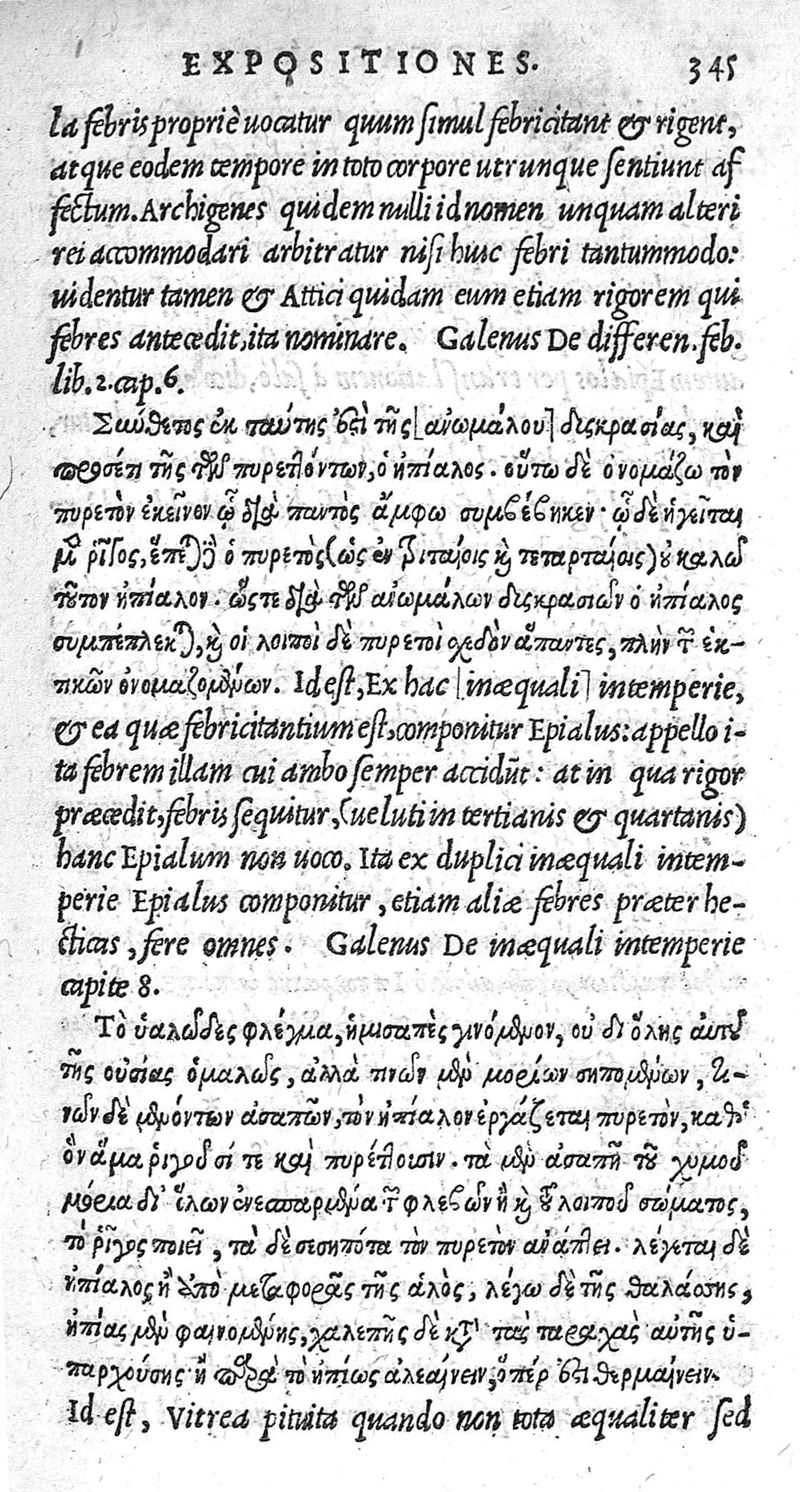 EXPOSITIONES. 345
la febris propriè uocatur quum simul febricitant & rigent,
atque eodem tempore in toto corpore utrunque sentiunt af
fectum. Archigenes quidem nulli id nomen unquam alteri
rei accommodari arbitratur nisi huic febri tantummodo:
uidentur tamen & Attici quidam eum etiam rigorem qui
febres antecedit, ita nominare. Galenus De differen. feb.
lib. 2. cap. 6.
Σύνθετος ἐκ ταύτης ἐστὶ τῆς [ἀνωμάλου] δυσκρασίας, καὶ
προσέτι τῆς τῶν πυρεττόντων, ὁ ἠπίαλος. οὕτω δὲ ὀνομάζω τὸν
πυρετὸν ἐκεῖνον ᾧ διὰ παντὸς ἄμφω συμβέβηκεν· ᾧ δὲ ἡγεῖται
μὲν ῥῖγος, ἕπεται δὲ ὁ πυρετὸς (ὡς ἐν τριταίοις καὶ τεταρταίοις) οὐ καλῶ
τοῦτον ἠπίαλον. ὥστε διὰ τῶν ἀνωμάλων δυσκρασιῶν ὁ ἠπίαλος
συμπέπλεκται, καὶ οἱ λοιποὶ δὲ πυρετοὶ σχεδὸν ἅπαντες, πλὴν τῶν ἑκ-
τικῶν ὀνομαζομένων. Id est, Ex hac [inæquali] intemperie,
& ea quæ febricitantium est, componitur Epialus: appello i-
ta febrem illam cui ambo semper accidūt: at in qua rigor
præcedit, febris sequitur, (ueluti in tertianis & quartanis)
hanc Epialum non uoco. Ita ex duplici inæquali intem-
perie Epialus componitur, etiam aliæ febres præter he-
cticas, fere omnes. Galenus De inæquali intemperie
capite 8.
Τὸ ὑαλῶδες φλέγμα, ἡμισαπὲς γινόμενον, οὐ δι' ὅλης αὐτοῦ
τῆς οὐσίας ὁμαλῶς, ἀλλὰ τινῶν μὲν μορίων σηπομένων, τι-
νῶν δὲ μενόντων ἀσαπῶν, τὸν ἠπίαλον ἐργάζεται πυρετὸν, καθ'
ὃν ἅμα ῥιγοῦσί τε καὶ πυρέττουσιν. τὰ μὲν ἀσαπῆ τοῦ χυμοῦ
μόρια δι' ὅλων ἐνεσπαρμένα τῶν φλεβῶν ἢ καὶ τοῦ λοιποῦ σώματος,
τὸ ῥῖγος ποιεῖ, τὰ δὲ σεσηπότα τὸν πυρετὸν ἀνάπτει. λέγεται δὲ
ἠπίαλος ἢ ἀπὸ μεταφορᾶς τῆς ἁλὸς, λέγω δὲ τῆς θαλάσσης,
ἠπίας μὲν φαινομένης, χαλεπῆς δὲ κατὰ τὰς ταραχὰς αὐτῆς ὑ-
παρχούσης ἢ παρὰ τὸ ἠπίως ἀλεαίνειν, ὅπέρ ἐστι θερμαίνειν.
Id est, Vitrea pituita quando non tota æqualiter sed